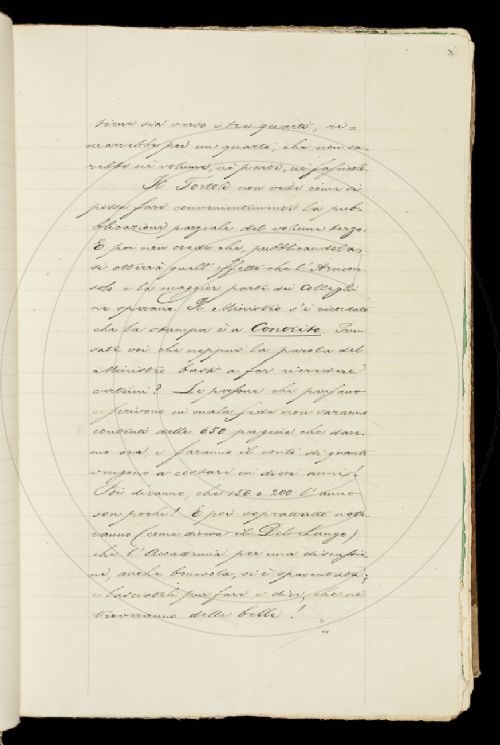 tiene sia verso i tre quarti, ri=
marrebbe poi un quarto, che non sa-
rebbe nè volume, nè parte, nè fascicolo.
Il Tortoli non vede come si
possa fare convenientemente la pub-
blicazione parziale del volume terzo.
E poi non crede che, pubblicandola,
si otterrà quell'effetto che l'Arcicon-
solo e la maggior parte dei Colleghi
ne sperano. Il Ministro s'è ricordato
che la stampa è a Conòito. Pen-
sate voi che neppur la parola del
Ministro basti a far ricredere
certuni? Le persone che pensano
e scrivono in mala fede non saranno
contenti delle 650 pagine che dare-
mo ora, e faranno il conto di quanti
vengono a costare in dieci anni!
Poi diranno, che 150 o 200 l'anno
son poche! E poi soprattutto note-
ranno (come diceva il Del Lungo)
che l'Accademia per una discussio-
ne, anche benevola, si è spaventata;
e lasciateli pur fare e dire, che ne
troveranno delle belle!